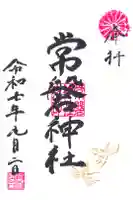 奉拝
常磐神社
令和七年元月二日